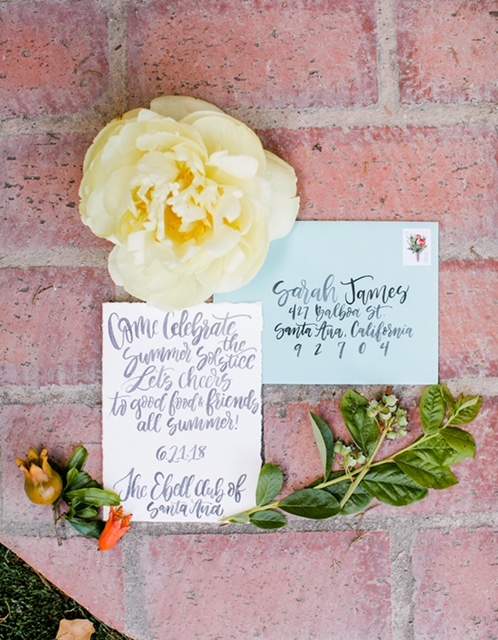 Sarah James
427 Balboa St.
Santa Ana, California
9 2 7 0 4
Come Celebrate
the
Summer Solstice
Let's cheers
to good food & friends
all summer!
6.21.18
The Ebell Club of
Santa Ana